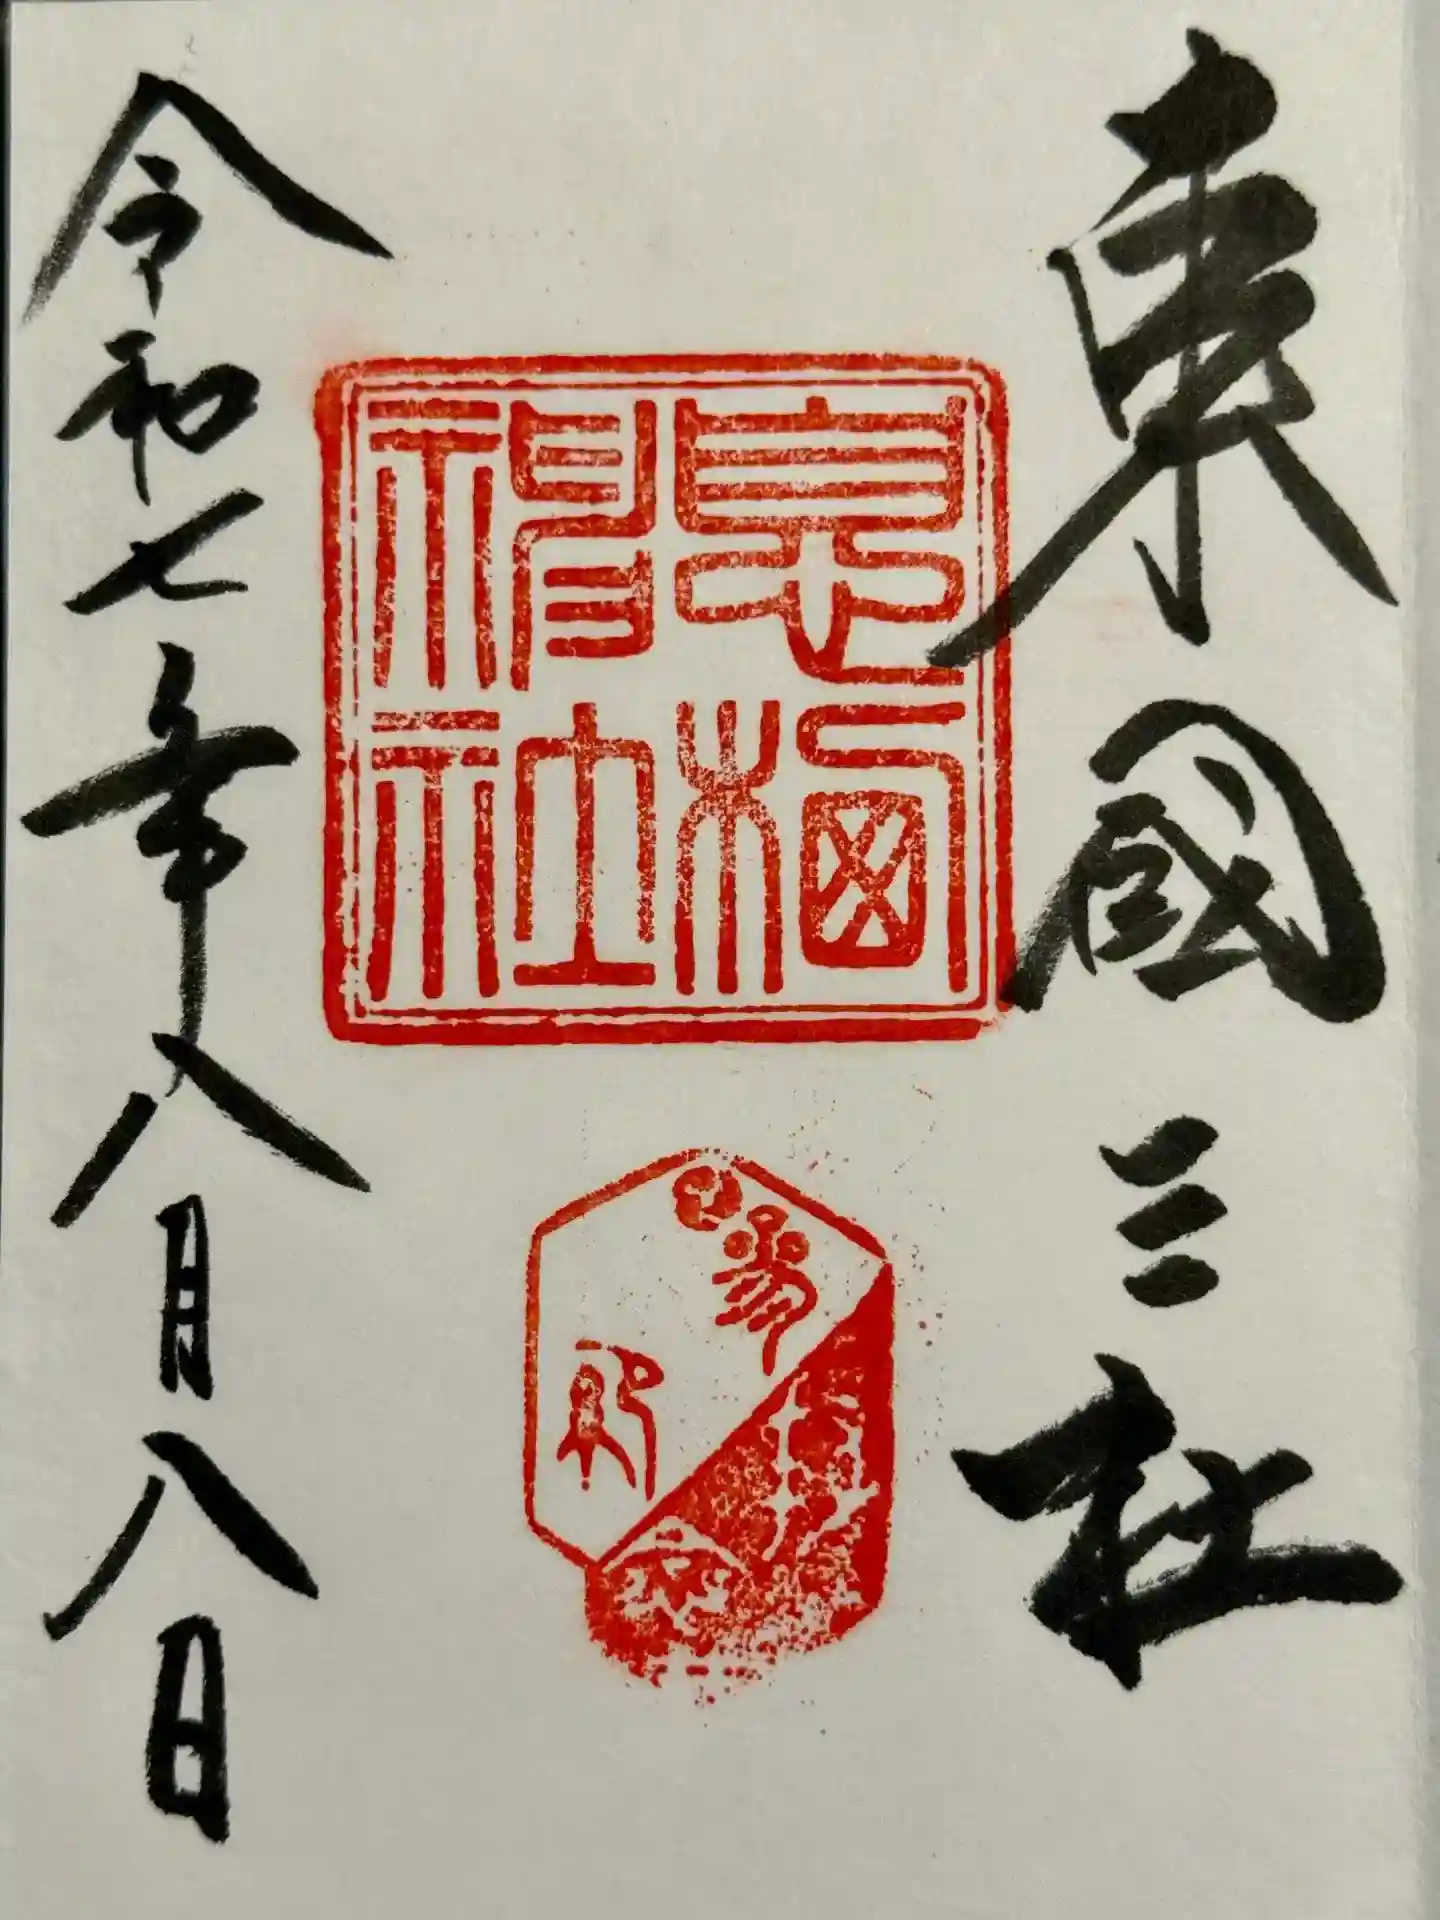 東國三社
息栖神社
参拝
令和七年八月八日